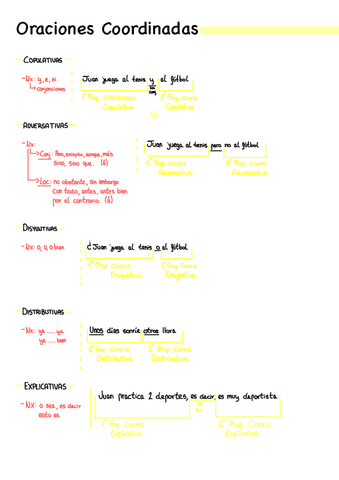 Oraciones Coordinadas
COPULATIVAS
- Nx: y, e, ni
conjunciones
Juan juega al tenis y al fútbol
nx
conj
1ª Prop coordinada
Copulativa
2ª Prop coord
Copulativa
ADVERSATIVAS
- Nx:
Conj: Pero, excepto, aunque, más
sino, sino que. (6)
Loc: no obstante, sin embargo
Con todo, antes, antes bien
por el contrario. (6)
Juan juega al tenis pero no al fútbol
1ª Prop coord
Adversativa
2ª Prop coord
Adversativa
DISYUNTIVAS
- Nx: o, u, o bien
¿Juan juega al tenis o al fútbol
1ª Prop Coord
Disyuntiva
2ª Prop Coord
Disyuntiva
DISTRIBUTIVAS
- Nx: ya ..... ya
ya ..... bien
Unos días sonríe otros llora
1ª Prop Coord
Distributiva
2ª Prop Coord
Distributiva
EXPLICATIVAS
- Nx: o sea, es decir
esto es
Juan practica 2 deportes, es decir, es muy deportista
1ª Prop Coord
Explicativa
2ª Prop Coord
Explicativa